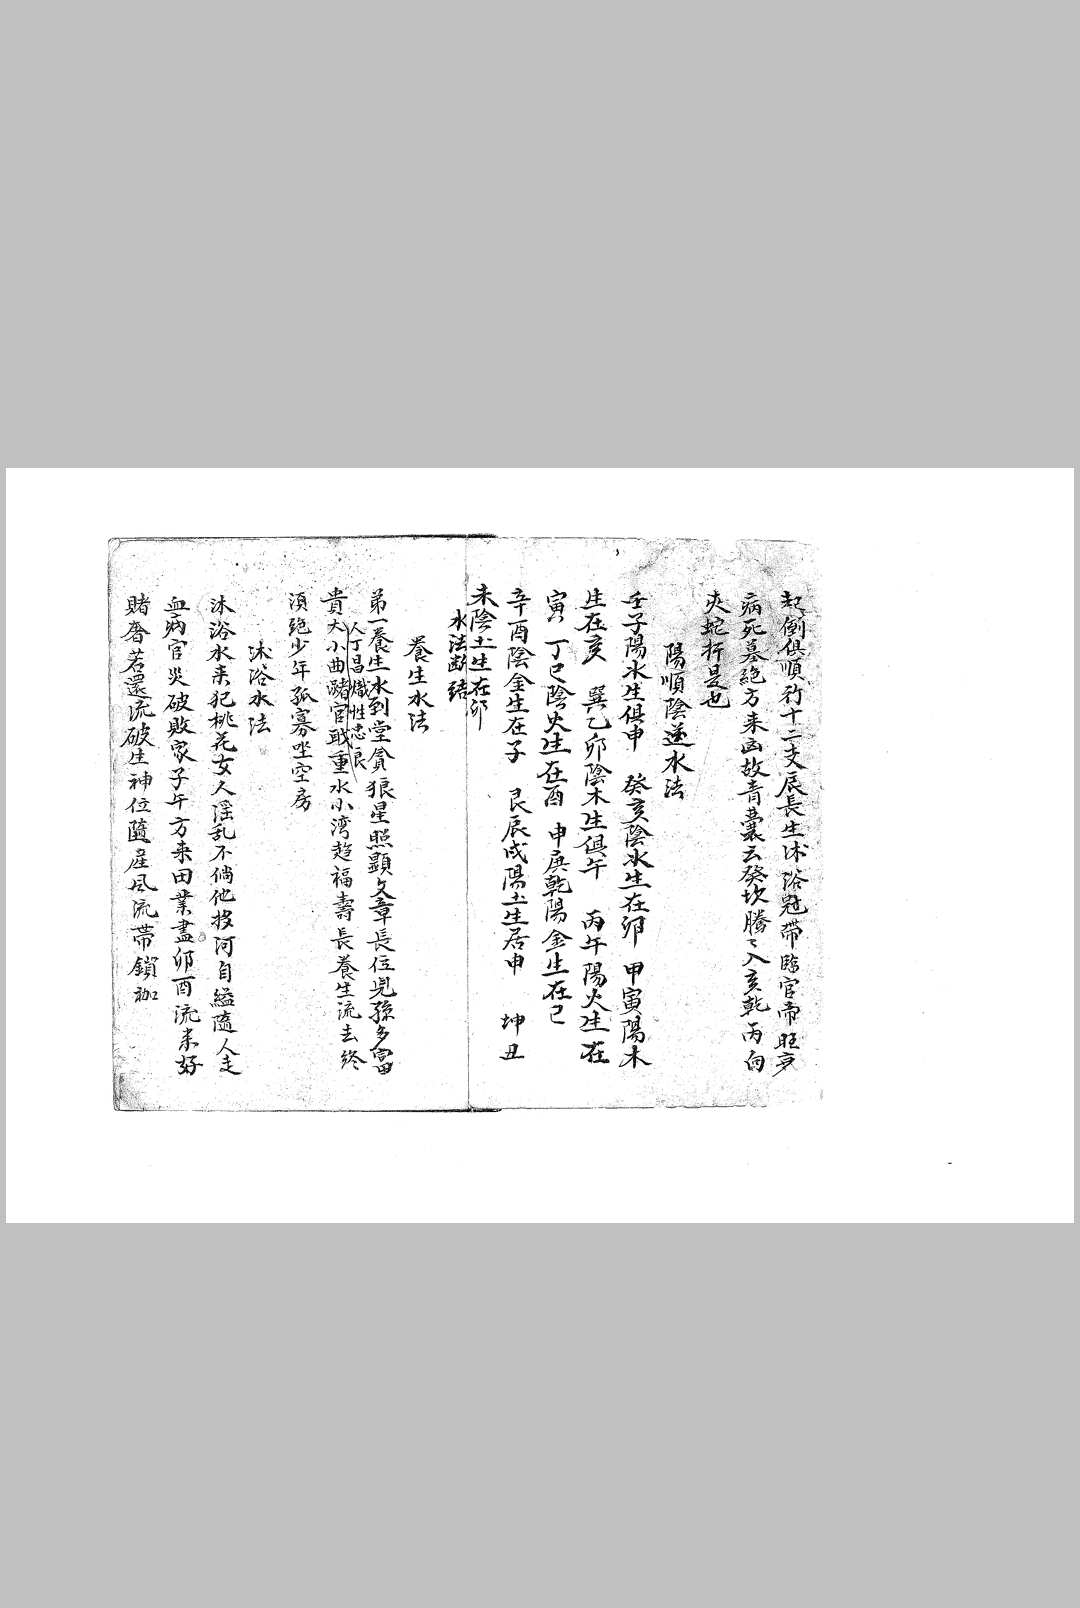 起倒俱順行十二支辰長生沐浴冠帶臨官帝旺亥
病死墓絕方来凶故青囊云癸坎騰〻入亥乾丙向
夾蛇行是也
陽順陰逆水法
壬子陽水生俱申　癸亥陰水生在卯　甲寅陽木
生在亥　巽乙卯陰木生俱午　丙午陽火生在
寅　丁巳陰火生在酉　申庚乾陽金生在巳
辛酉陰金生在子　艮辰戌陽土生居申　坤丑
未陰土生在卯
水法断结
養生水法
第一養生水到堂貪狼星照顯文章長位児孫多富
人丁昌熾性忠良
貴大小曲瀦官職重水小湾趋福壽長養生流去終
須絕少年孤寡坐空房
沐浴水法
沐浴水来犯桃花女人淫乱不倘他投河自縊隨人走
血病官災破敗家子午方来田業盡卯酉流来好
賭奢若還流破生神位隨産風流帯鎖枷